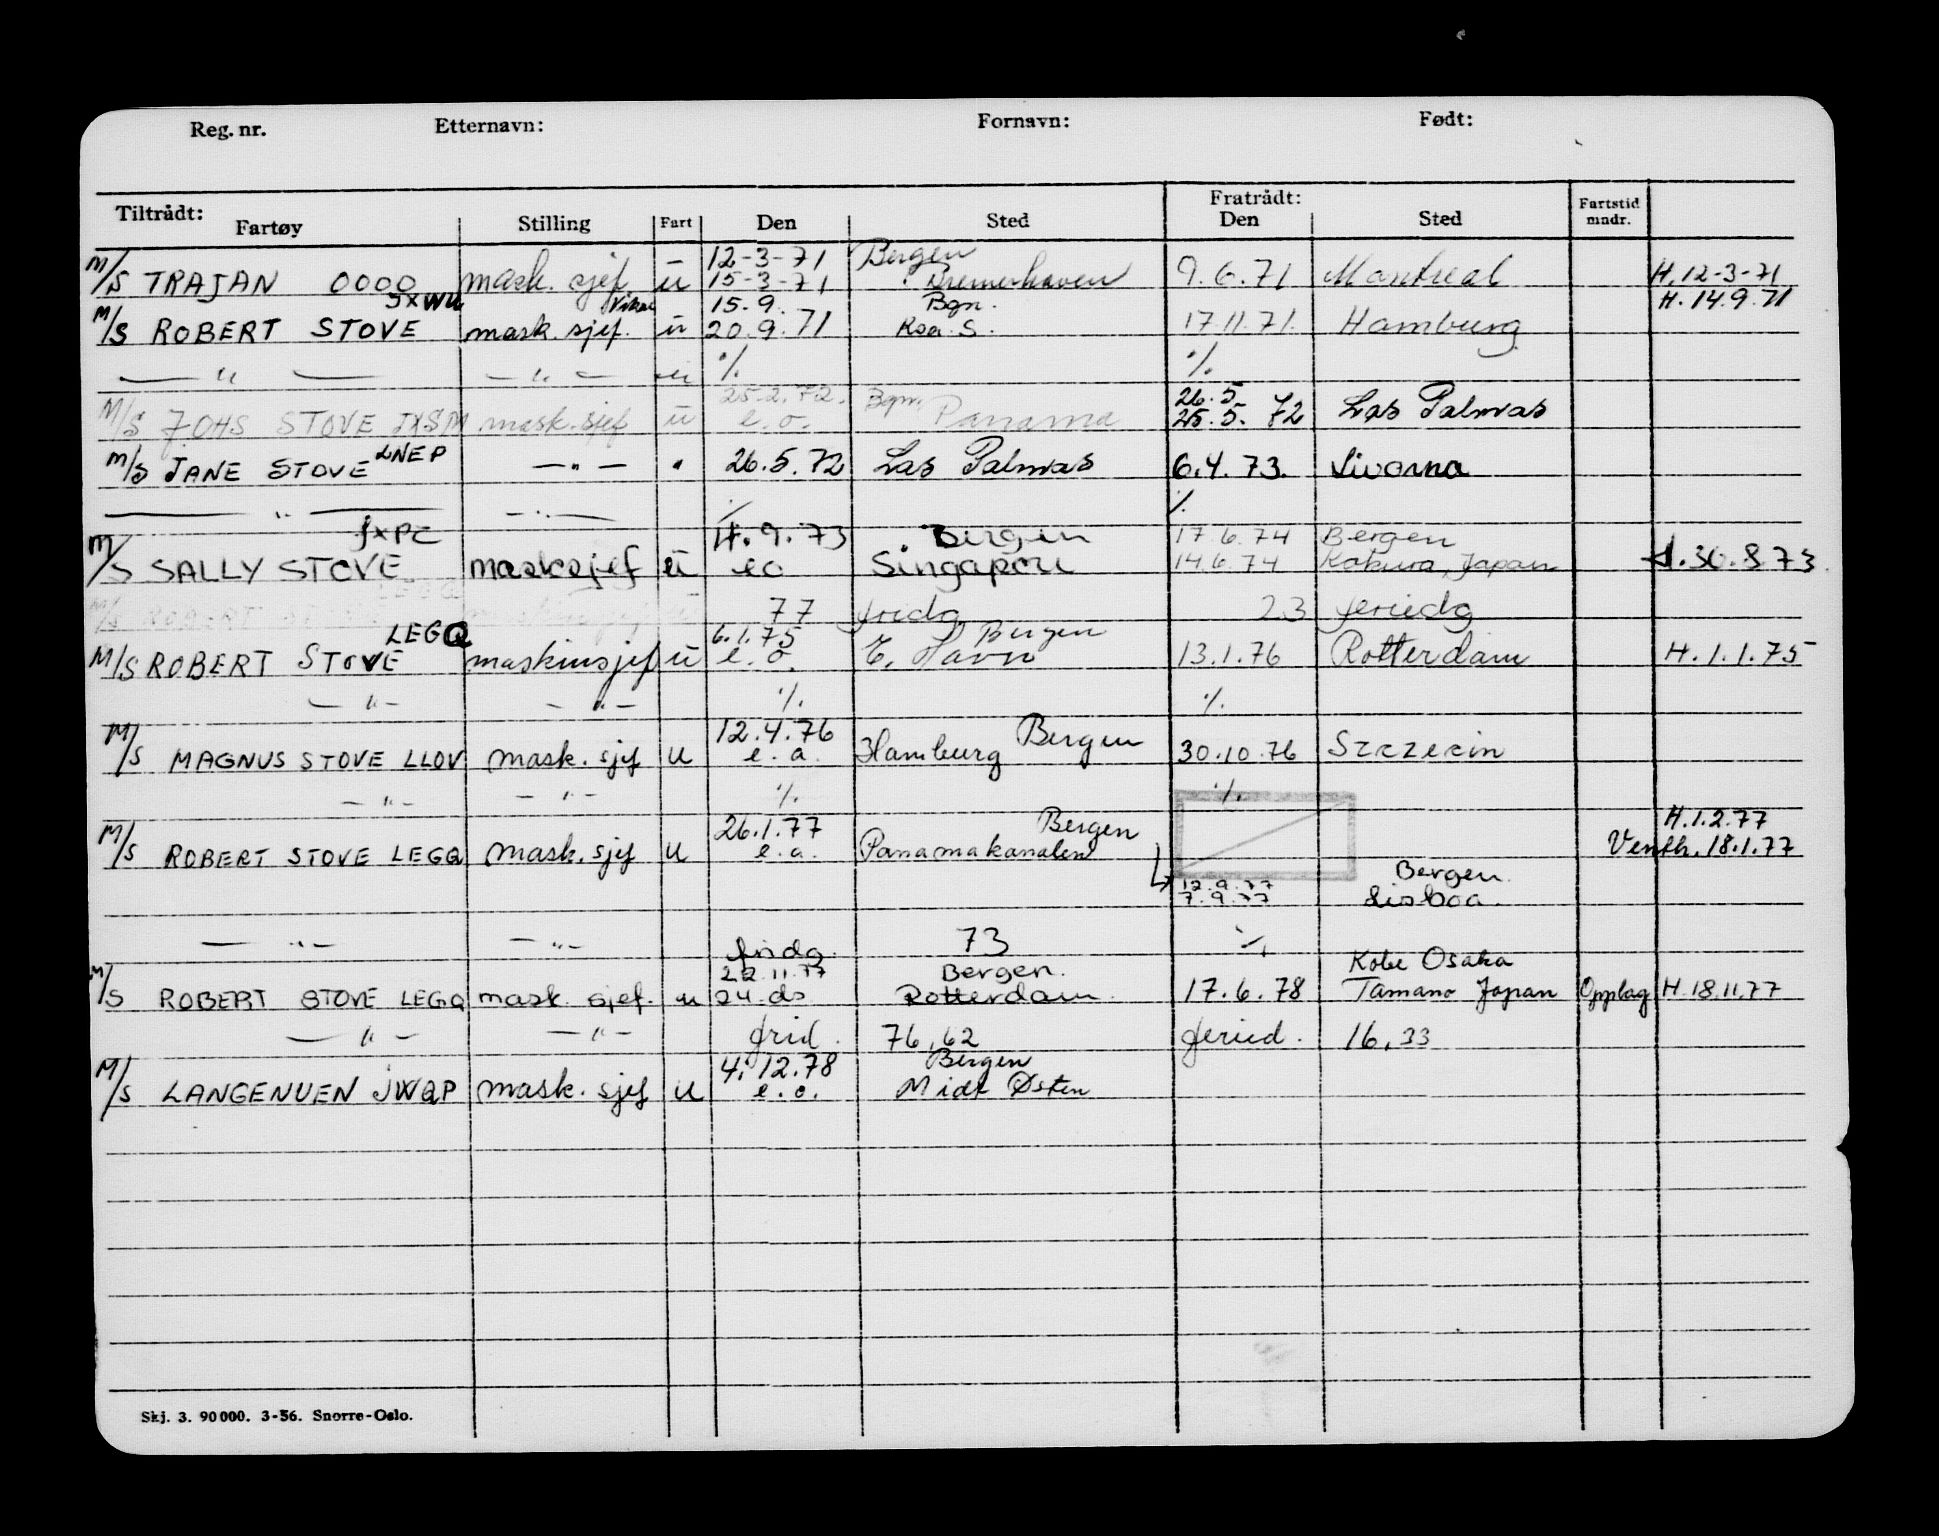 Reg. nr. Etternavn: Fornavn: Født:
Tiltrådt: Fratrådt:
Fartøy Stilling Fart Den Sted Den Sted Fartstid mndr.
12-3-71 Bergen
M/S TRAJAN OOOO mask. sjef. u 15-3-71 Bremerhaven 9.6.71 Montreal H. 12-3-71
JXWU Vikar 15.9. Bgn. H. 14.9.71
M/S ROBERT STOVE mask. sjef. u 20.9.71 17.11.71. Hamburg
— " — — " — u %. %.
25.2.72. Bgn. 26.5.
M/S JOHS STOVE JXSM mask. sjef u e.o. Panama 25.5. 72 Las Palmas
M/S JANE STOVE LNEP — " — " 26.5.72 Las Palmas 6.4.73. Livorno
— " — — " — % %
JXPC 4.9.73 Bergen 17.6.74 Bergen
M/S SALLY STOVE masksjef u eo Singapore 14.6.74 Kokura, Japan H. 30.8.73.
LEGQ
M/S ROBERT STOVE 77 frida 23 feriedg
LEGQ 6.1.75 Bergen
M/S ROBERT STOVE maskinsjef u e.o. E. Havn 13.1.76 Rotterdam H. 1.1.75
— " — — " — %. %.
12.4.76 Bergen
M/S MAGNUS STOVE LLOV mask. sjef u e.o. Hamburg 30.10.76 Szczecin
— " — — " — %. %.
26.1.77 Bergen H. 1.2.77
M/S ROBERT STOVE LEGQ mask. sjef u e.o. Panamakanalen Venth. 18.1.77
12.9.77 Bergen.
7.9.77 Lisboa.
— " — — " — fridg. 73 %
22.11.77 Bergen. Kobe Osaka
M/S ROBERT STOVE LEGQ mask. sjef. u 24. ds Rotterdam. 17.6.78 Tamano Japan Opplag H. 18.11.77
— " — — " — frid. 76,62 feried. 16,33
4.12.78 Bergen
M/S LANGENUEN JWQP mask. sjef u e.o. Midt Østen
Skj. 3. 90000. 3-56. Snorre-Oslo.